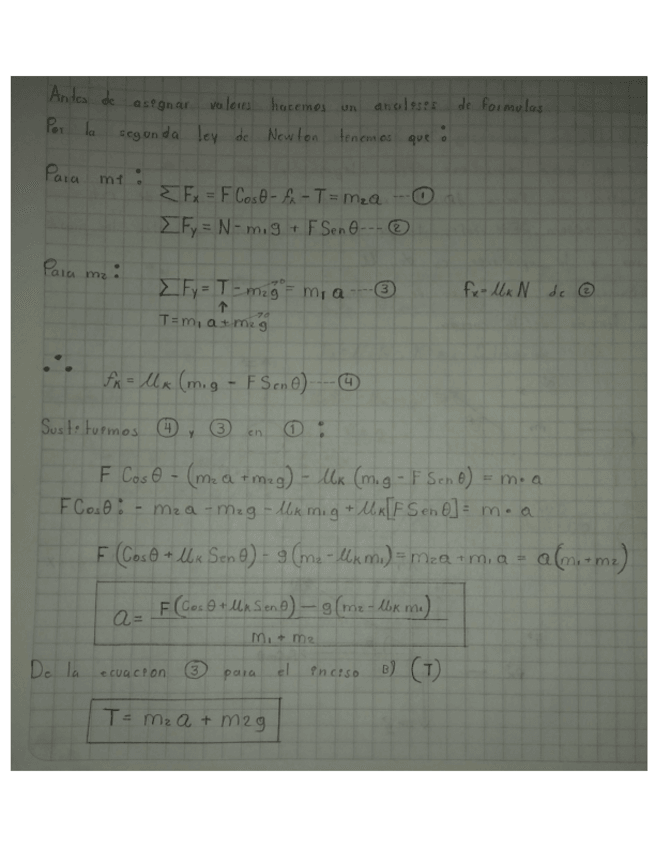 Antes de asignar valores hacemos un analisis de formulas
Por la segunda ley de Newton tenemos que:
Para m1:
ΣFx = F Cosθ - fk - T = m2a ---①
ΣFy = N - m1g + F Senθ --- ②
Para m2:
ΣFy = T - m2g = m1 a ---③ fk = μk N de ②
↑
T = m1 a + m2g
∴
fk = μk (m1g - F Senθ) ---④
Sustituimos ④ y ③ en ① :
F Cosθ - (m2a + m2g) - μk (m1g - F Senθ) = m• a
F Cosθ: - m2a - m2g - μk m1g + μk[F Senθ] = m• a
F (Cosθ + μk Senθ) - g(m2 - μk m1) = m2a + m1a = a(m1 + m2)
a = F(Cosθ + μk Senθ) - g(m2 - μk m1)
m1 + m2
De la ecuacion ③ para el inciso B) (T)
T = m2a + m2g